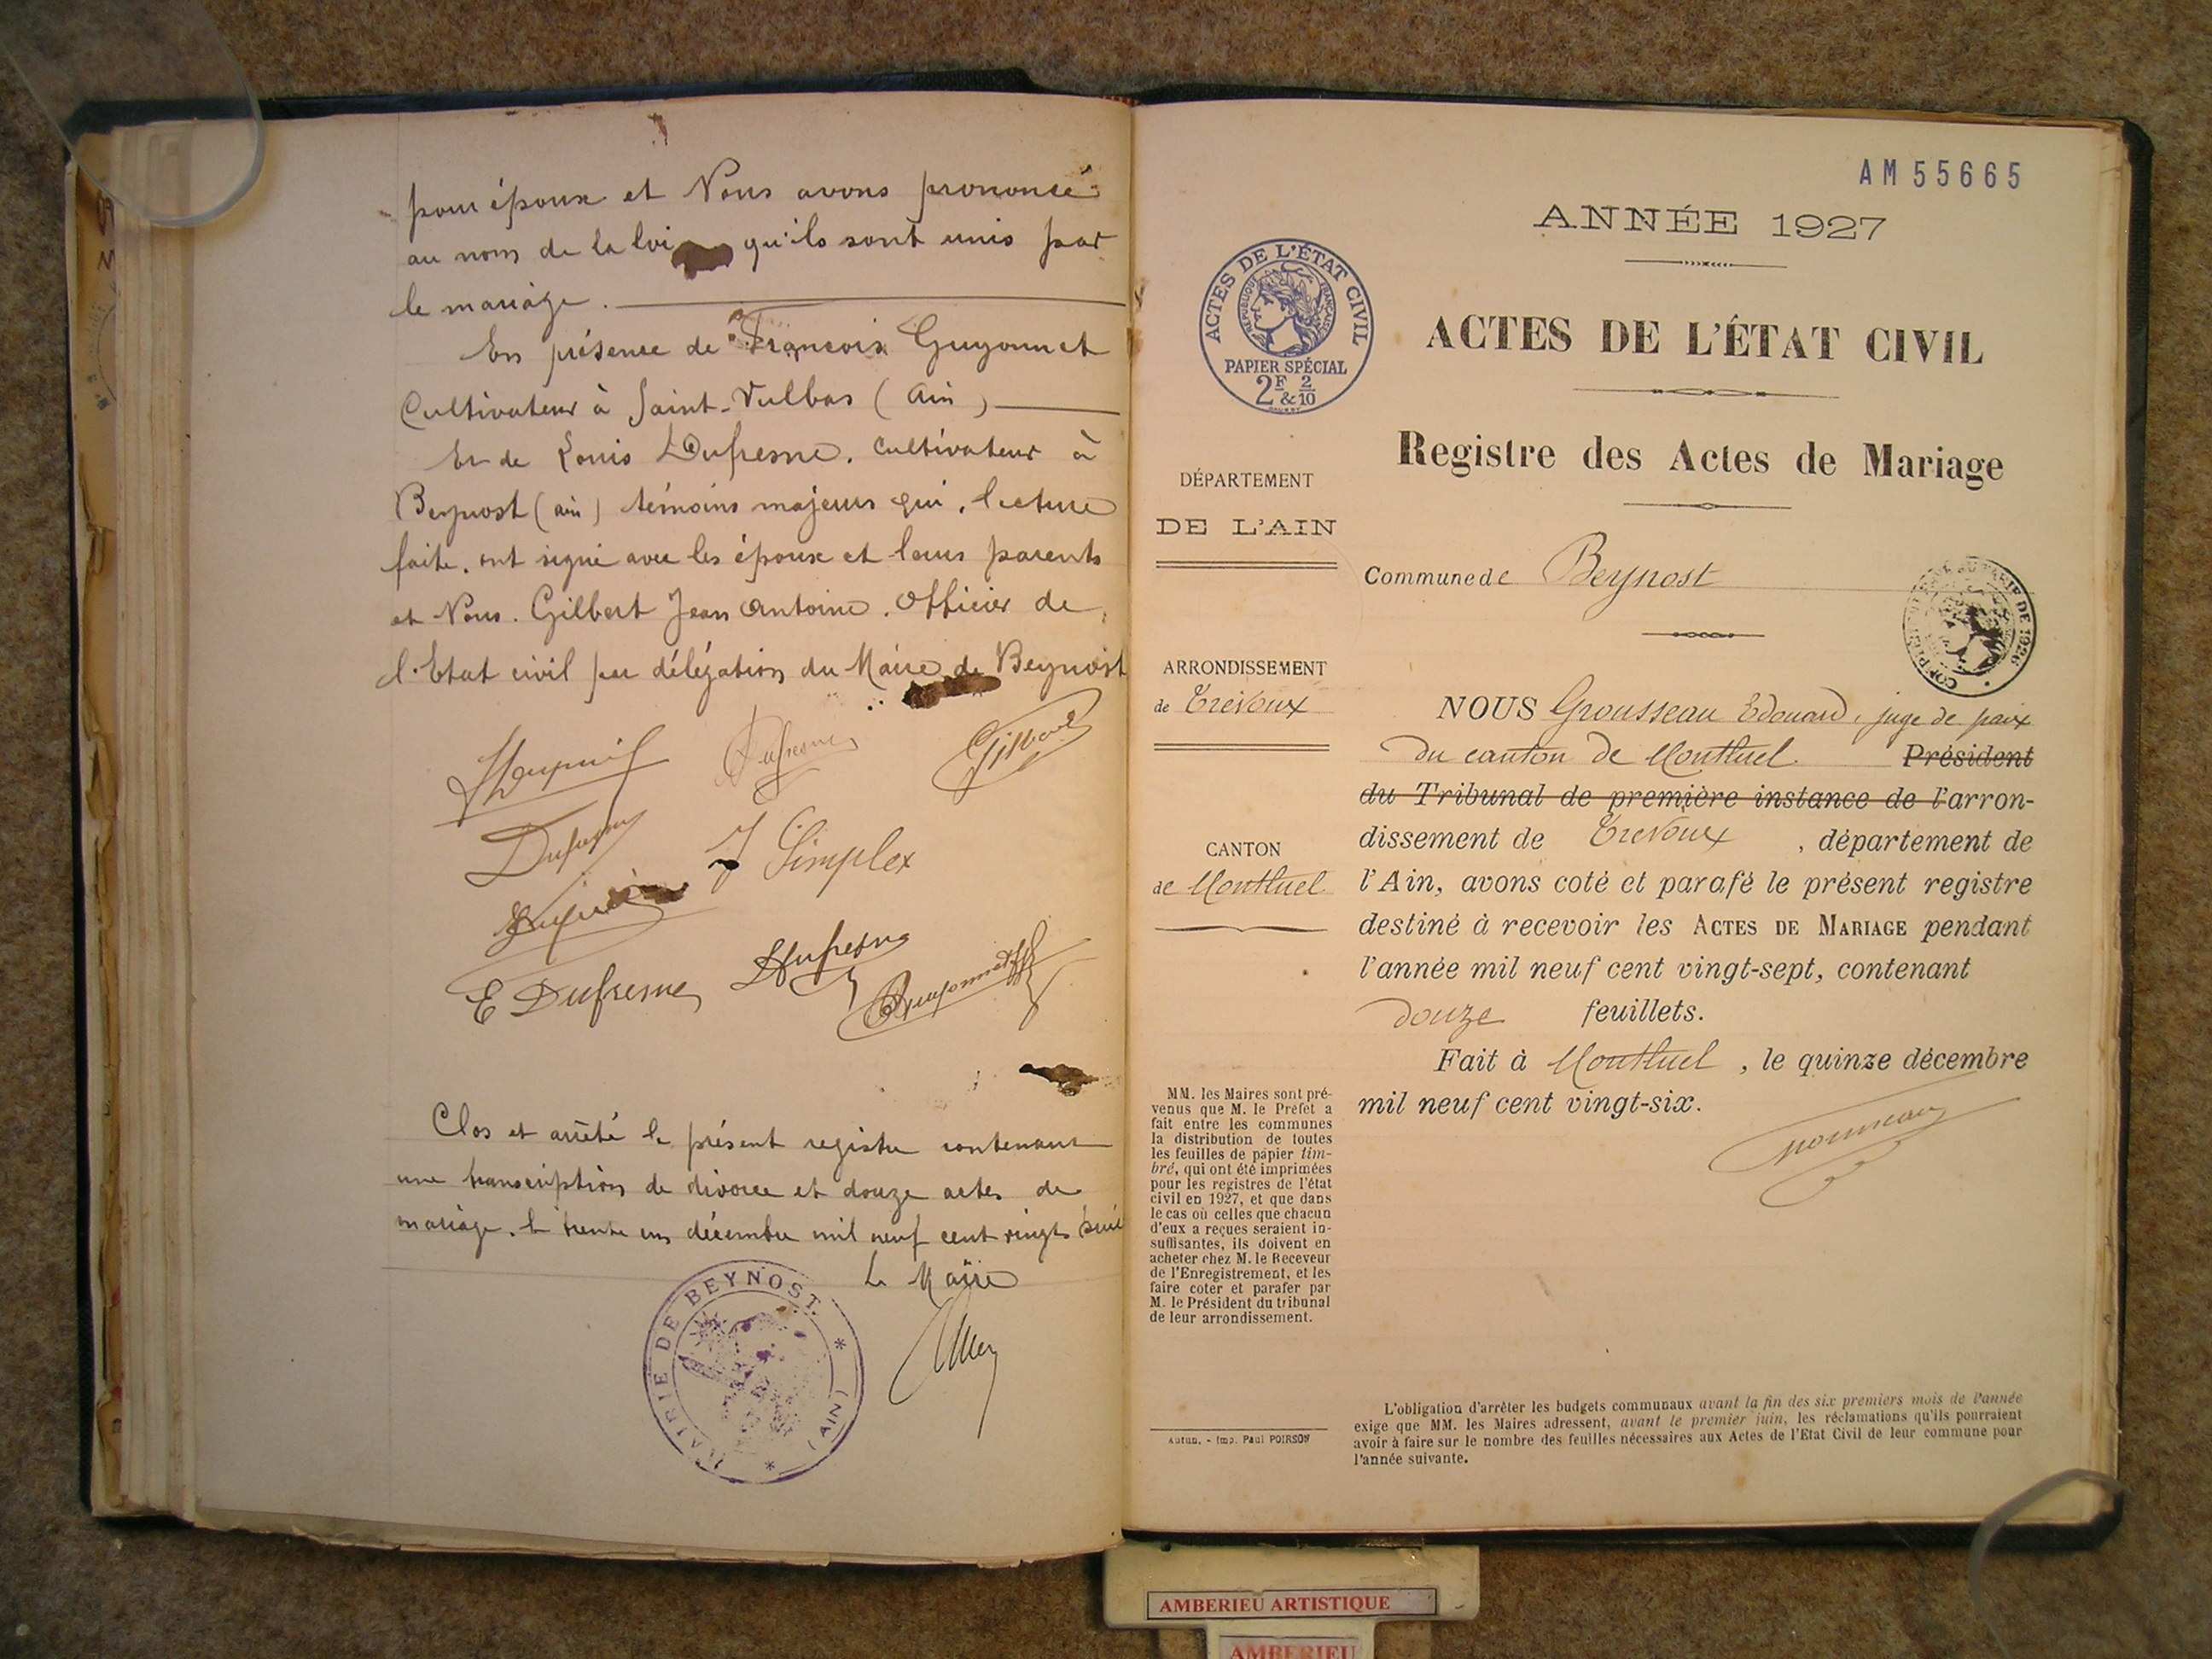 pour époux et Nous avons prononcé
au nom de la loi qu'ils sont unis par
le mariage.
En présence de François Guyonnet
Cultivateur à Saint-Vulbas (Ain)
Et de Louis Dufresne. Cultivateur à
Beynost (ain) témoins majeurs qui, lecture
faite, ont signé avec les époux et leurs parents
et Nous. Gilbert Jean Antoine. Officier de
l'Etat civil par délégation du Maire de Beynost
Dufresne
Gilbert
Dufresne
J Simplex
E Dufresne
Dufresne
Guyonnet
Clos et arrêté le présent registre contenant
une transcription de divorce et douze actes de
mariage, le trente un décembre mil neuf cent vingt six
Le Maire
MAIRIE DE BEYNOST.
* (AIN) *
AM55665
ANNÉE 1927
ACTES DE L'ÉTAT CIVIL
RÉPUBLIQUE FRANÇAISE
PAPIER SPÉCIAL
2F & 2/10
ACTES DE L'ÉTAT CIVIL
Registre des Actes de Mariage
DÉPARTEMENT
DE L'AIN
Commune de Beynost
ARRONDISSEMENT
de Trévoux
CANTON
de Montluel
NOUS Grousseau Edouard, juge de paix
du canton de Montluel Président
du Tribunal de première instance de l'arron-
dissement de Trévoux, département de
l'Ain, avons coté et parafé le présent registre
destiné à recevoir les ACTES DE MARIAGE pendant
l'année mil neuf cent vingt-sept, contenant
douze feuillets.
Fait à Montluel, le quinze décembre
mil neuf cent vingt-six.
MM. les Maires sont pré-
venus que M. le Préfet a
fait entre les communes
la distribution de toutes
les feuilles de papier tim-
bré, qui ont été imprimées
pour les registres de l'état
civil en 1927, et que dans
le cas où celles que chacun
d'eux a reçues seraient in-
suffisantes, ils doivent en
acheter chez M. le Receveur
de l'Enregistrement, et les
faire coter et parafer par
M. le Président du tribunal
de leur arrondissement.
Autun. - Imp. Paul POIRSON
L'obligation d'arrêter les budgets communaux avant la fin des six premiers mois de l'année
exige que MM. les Maires adressent, avant le premier juin, les réclamations qu'ils pourraient
avoir à faire sur le nombre des feuilles nécessaires aux Actes de l'Etat Civil de leur commune pour
l'année suivante.
AMBERIEU ARTISTIQUE
AMBERIEU